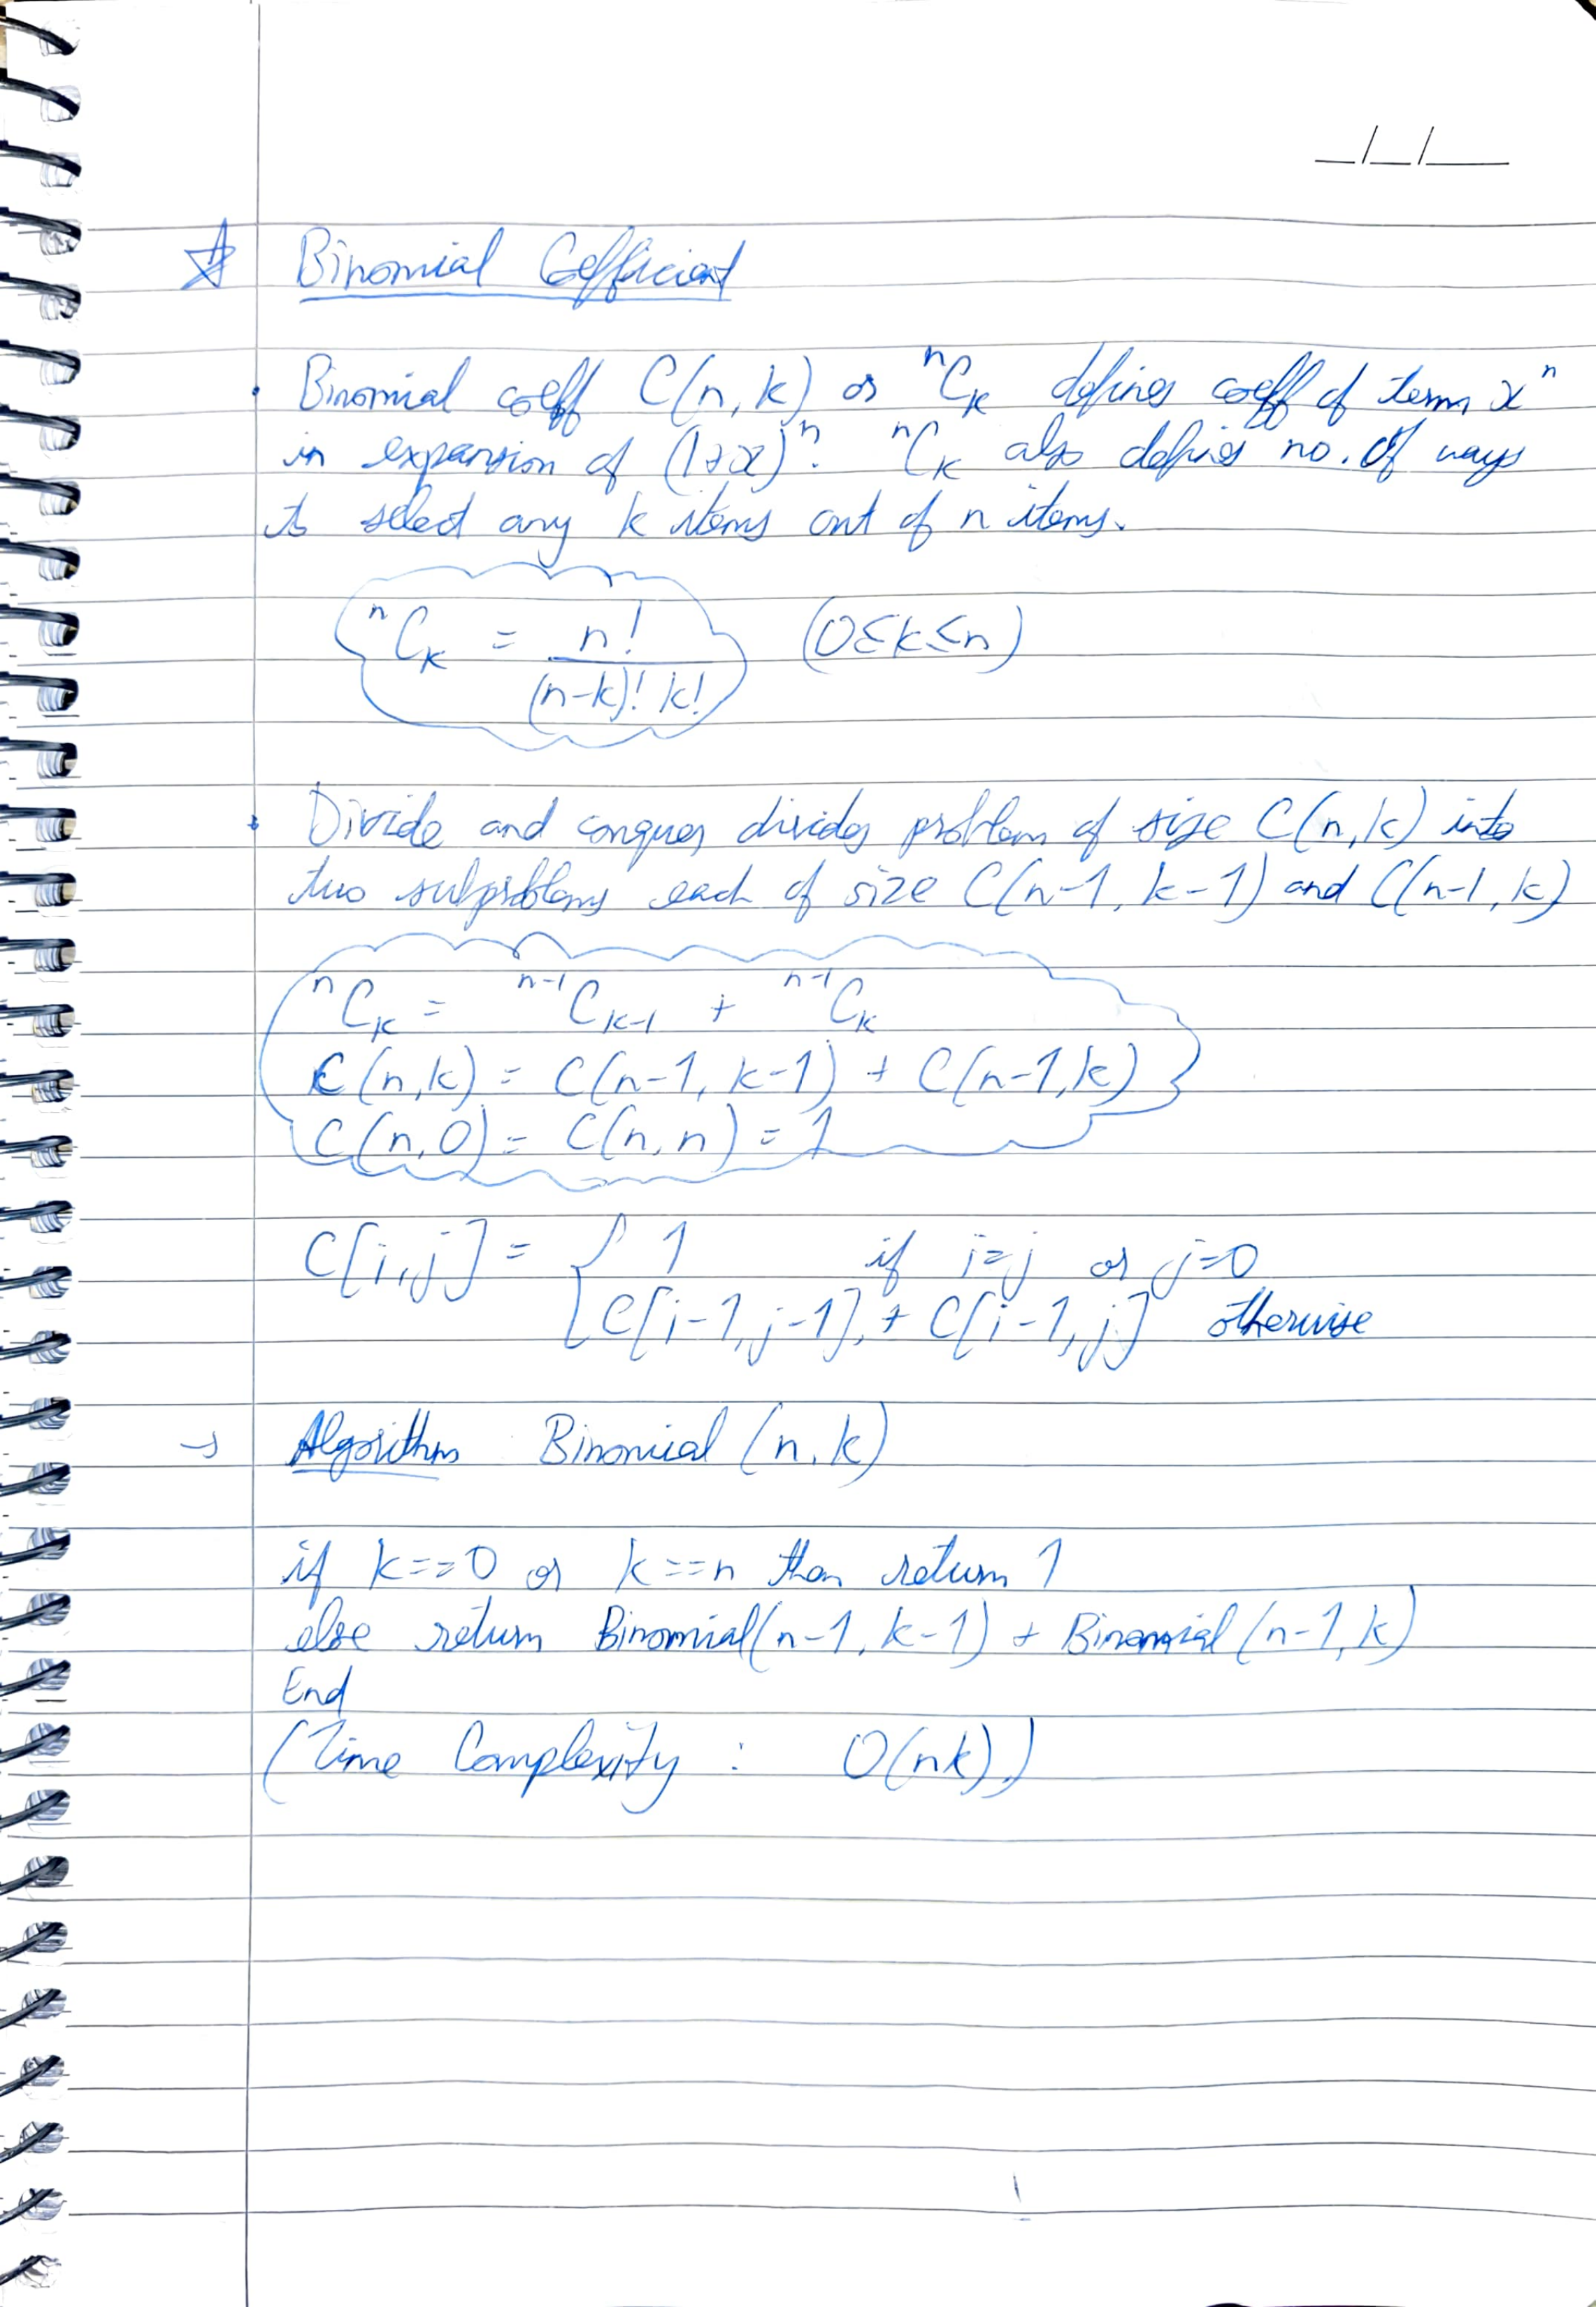 _/_/__
☆ Binomial Coefficient
• Binomial coeff C(n, k) or ⁿCₖ defines coeff of term xⁿ
in expansion of (1+x)ⁿ. ⁿCₖ also defines no. of ways
to select any k items out of n items.
ⁿCₖ = n! / (n-k)! k! (0≤k≤n)
• Divide and conquer divides problem of size C(n,k) into
two subproblems each of size C(n-1, k-1) and C(n-1, k)
ⁿCₖ = ⁿ⁻¹Cₖ₋₁ + ⁿ⁻¹Cₖ
C(n,k) = C(n-1, k-1) + C(n-1,k)
C(n,0) = C(n,n) = 1
C[i,j] = { 1 if i=j or j=0
C[i-1,j-1] + C[i-1,j] otherwise
→ Algorithm Binomial (n, k)
if k==0 or k==n then return 1
else return Binomial(n-1, k-1) + Binomial (n-1, k)
End
(Time Complexity : O(nk))